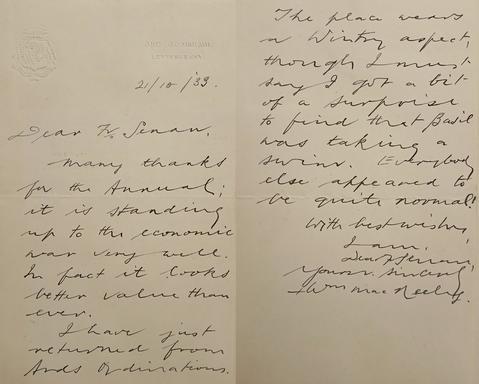 21/10/33.
Dear Fr. Senan,
Many thanks
for the Annual;
it is standing
up to the economic
war very well.
In fact it looks
better value than
ever.
I have just
returned from
Ards Ordinations.
The place wears
a Wintry aspect,
though I must
say I got a bit
of a surprise
to find that Basil
was taking a
swim. Everybody
else appeared to
be quite normal!
With best wishes,
I am,
Dear Fr Senan,
Yours sincerely
+ Wm MacNeely.